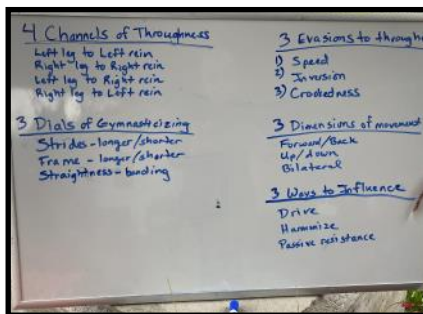 4 Channels of Throughness
Left leg to Left rein
Right leg to Right rein
Left leg to Right rein
Right leg to Left rein
3 Dials of Gymnasticizing
Strides - longer/shorter
Frame - longer/shorter
Straightness - bending
3 Evasions to through
1) Speed
2) Inversion
3) Crookedness
3 Dimensions of movement
Forward/Back
Up/down
Bilateral
3 Ways to Influence
Drive
Harmonize
Passive resistance